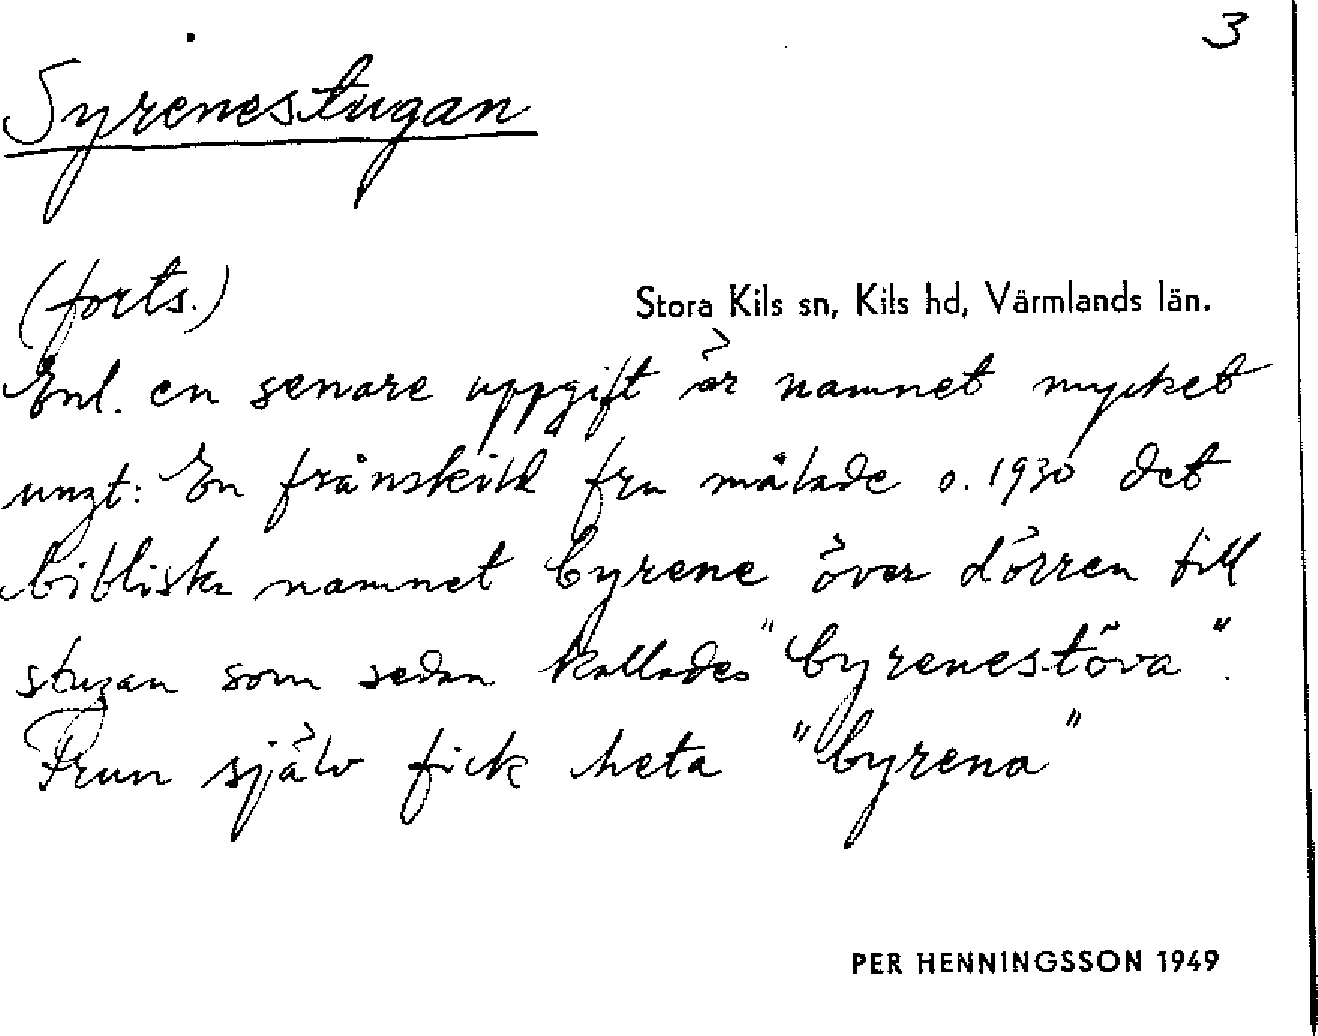 3
Syrenestugan
(forts.)
Stora Kils sn, Kils hd, Värmlands län.
Enl. en senare uppgift är namnet mycket
ungt: En frånskild fru målade o. 1930 det
bibliska namnet Cyrene över dörren till
stugan som sedan kallades "Cyrenestöva".
Frun själv fick heta "Cyrena"
PER HENNINGSSON 1949